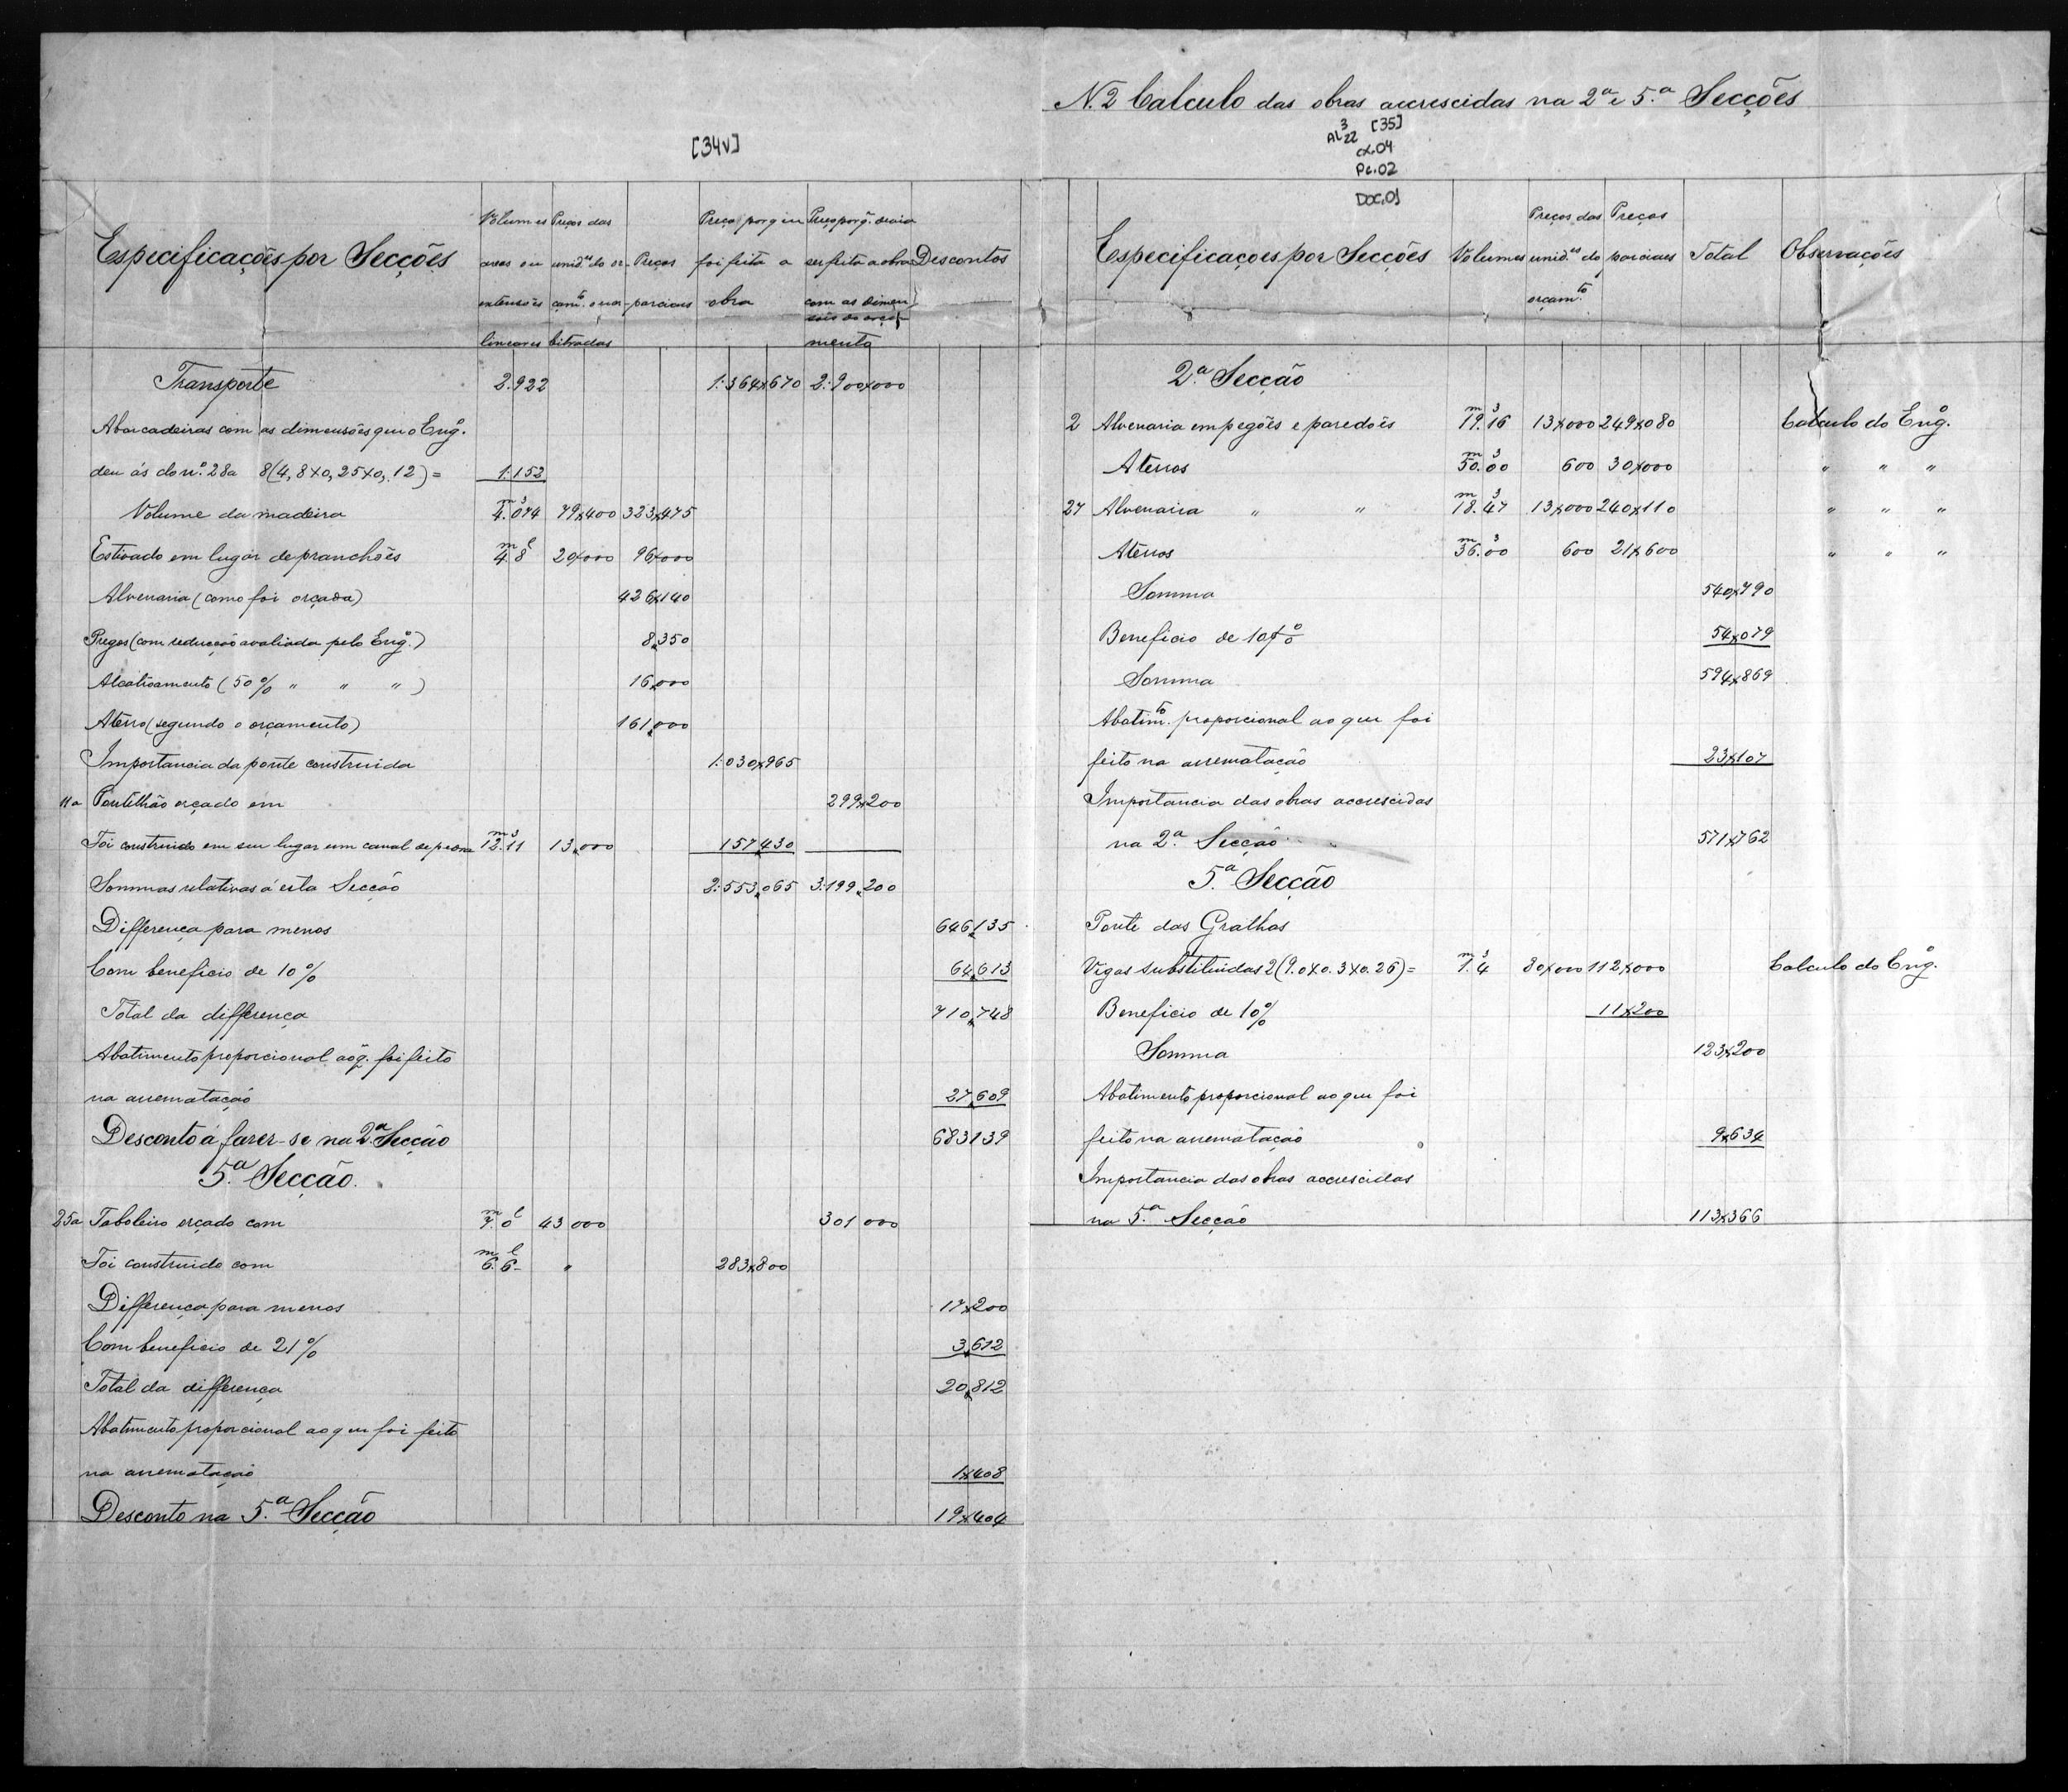 [34v]
Especificações por Secções
Volumes areas ou extensões lineares
Preços das unid.es do orçam.to e uar-bitradas
Preços parciaes
Preço porque foi feita a obra
Preço porq. devia ser feita a obra com as dimensões do orçamento
Descontos
Transporte 2.922 1:364$670 2:900$000
Abarcadeiras com as dimensões que o Eng.o
deu ás do n.o 28a 8(4,8×0,25×0,12)= 1.152
Volume da madeira m3 4.074 79$400 323$475
Estivado em lugar de pranchões ml 4.8 20$000 96$000
Alvenaria (como foi orçada) 426$140
Pregos (com reducção avaliada pelo Eng.o) 8$350
Alcatroamento (50% " " ") 16$000
Aterro (segundo o orçamento) 161$000
Importancia da ponte construida 1:030$965
11a Pontilhão orçado em 299$200
Foi construido em seu lugar um canal de pedra m3 12.11 13$000 157$430
Sommas relativas á esta Secção 2:553$065 3:199$200
Differença para menos 646$135
Com beneficio de 10% 64$613
Total da differença 710$748
Abatimento proporcional aoq. foi feito
na arrematação 27$609
Desconto á fazer-se na 2.a Secção 683139
5.a Secção
25a Taboleiro orçado com ml 7.0 43 000 301 000
Foi construido com ml 6.6 " 283$800
Differença para menos 17$200
Com beneficio de 21% 3$612
Total da differença 20$812
Abatimento proporcional ao que foi feito
na arrematação 1$408
Desconto na 5.a Secção 19$404
N.2 Calculo das obras accrescidas na 2a e 5.a Secções
[35]
Al 3 22
cx.04
Pc.02
Doc.01
Especificaçoes por Secções
Volumes
Preços das unid.es do orçam.to
Preços parciaes
Total
Observações
2.a Secção
2 Alvenaria em pegões e paredões m3 19.16 13$000 249$080 Calculo do Eng.o
Aterros m3 50.00 600 30$000 " " "
27 Alvenaria " " m3 18.47 13$000 240$110 " " "
Aterros m3 36.00 600 21$600 " " "
Somma 540$790
Beneficio de 10% 54$079
Somma 594$869
Abatim.to proporcional ao que foi
feito na arrematação 23$107
Importancia das obras accrescidas
na 2.a Secção 571$762
5.a Secção
Ponte das Gralhas
Vigas substituidas 2(9.0×0.3×0.26)= m3 1.4 80$000 112$000 Calculo do Eng.o
Beneficio de 10% 11$200
Somma 123$200
Abatimento proporcional ao que foi
feito na arrematação 9$634
Importancia das obras accrescidas
na 5.a Secção 113$366